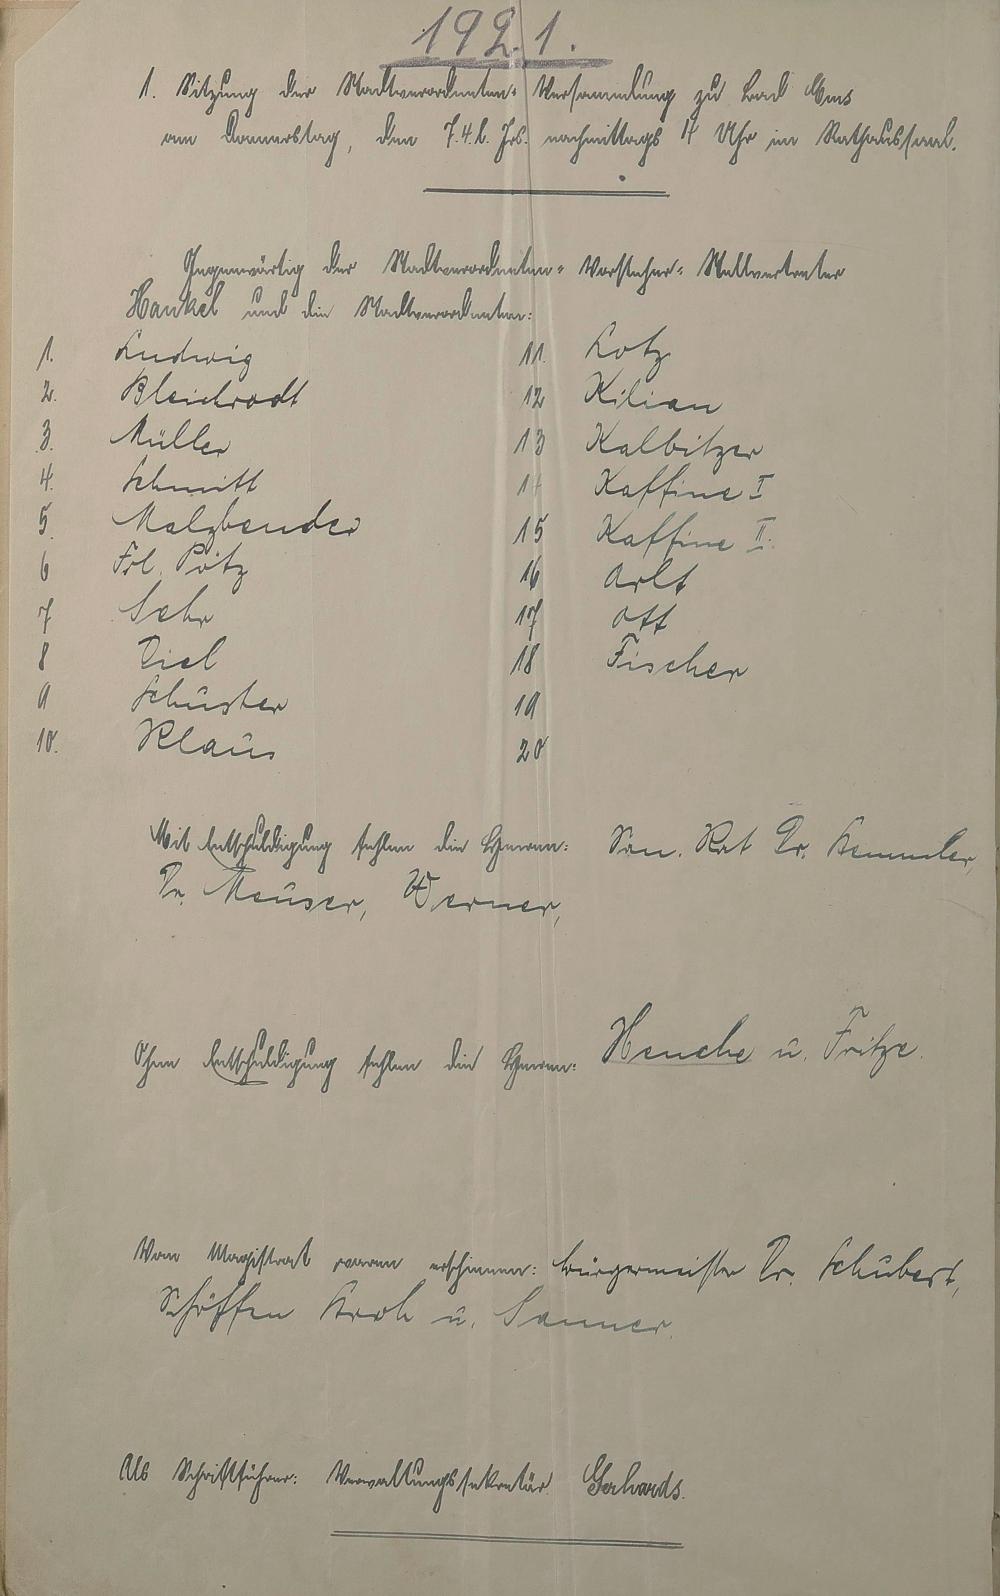 1921.
1. Sitzung der Stadtverordneten-Versammlung zu Bad Ems
am Donnerstag, den 7.4. l. Jrs. nachmittags 4 Uhr im Rathaussaal.
Gegenwärtig der Stadtverordneten-Vorsteher-Stellvertreter
Hankel und die Stadtverordneten:
1. Ludwig 11. Lotz
2. Bleichrodt 12 Kilian
3. Müller 13 Kalbitzer
4. Schmitt 14 Kaffine I
5. Malzbender 15 Kaffine II.
6 Frl. Pötz 16 Arlt
7 Sehr 17 Ott
8 Diel 18 Fischer
9 Schuster 19
10. Klaus 20
Mit Entschuldigung fehlen die Herren: San. Rat Dr.
Dr. Meuser, Werner,
Ohne Entschuldigung fehlen die Herren: Henche u. Fritze.
Vom Magistrat waren erschienen: Bürgermeister Dr. Schubert,
Schöffen Kroh u. Sanner.
Als Schriftführer: Verwaltungssekretär Gerhards.